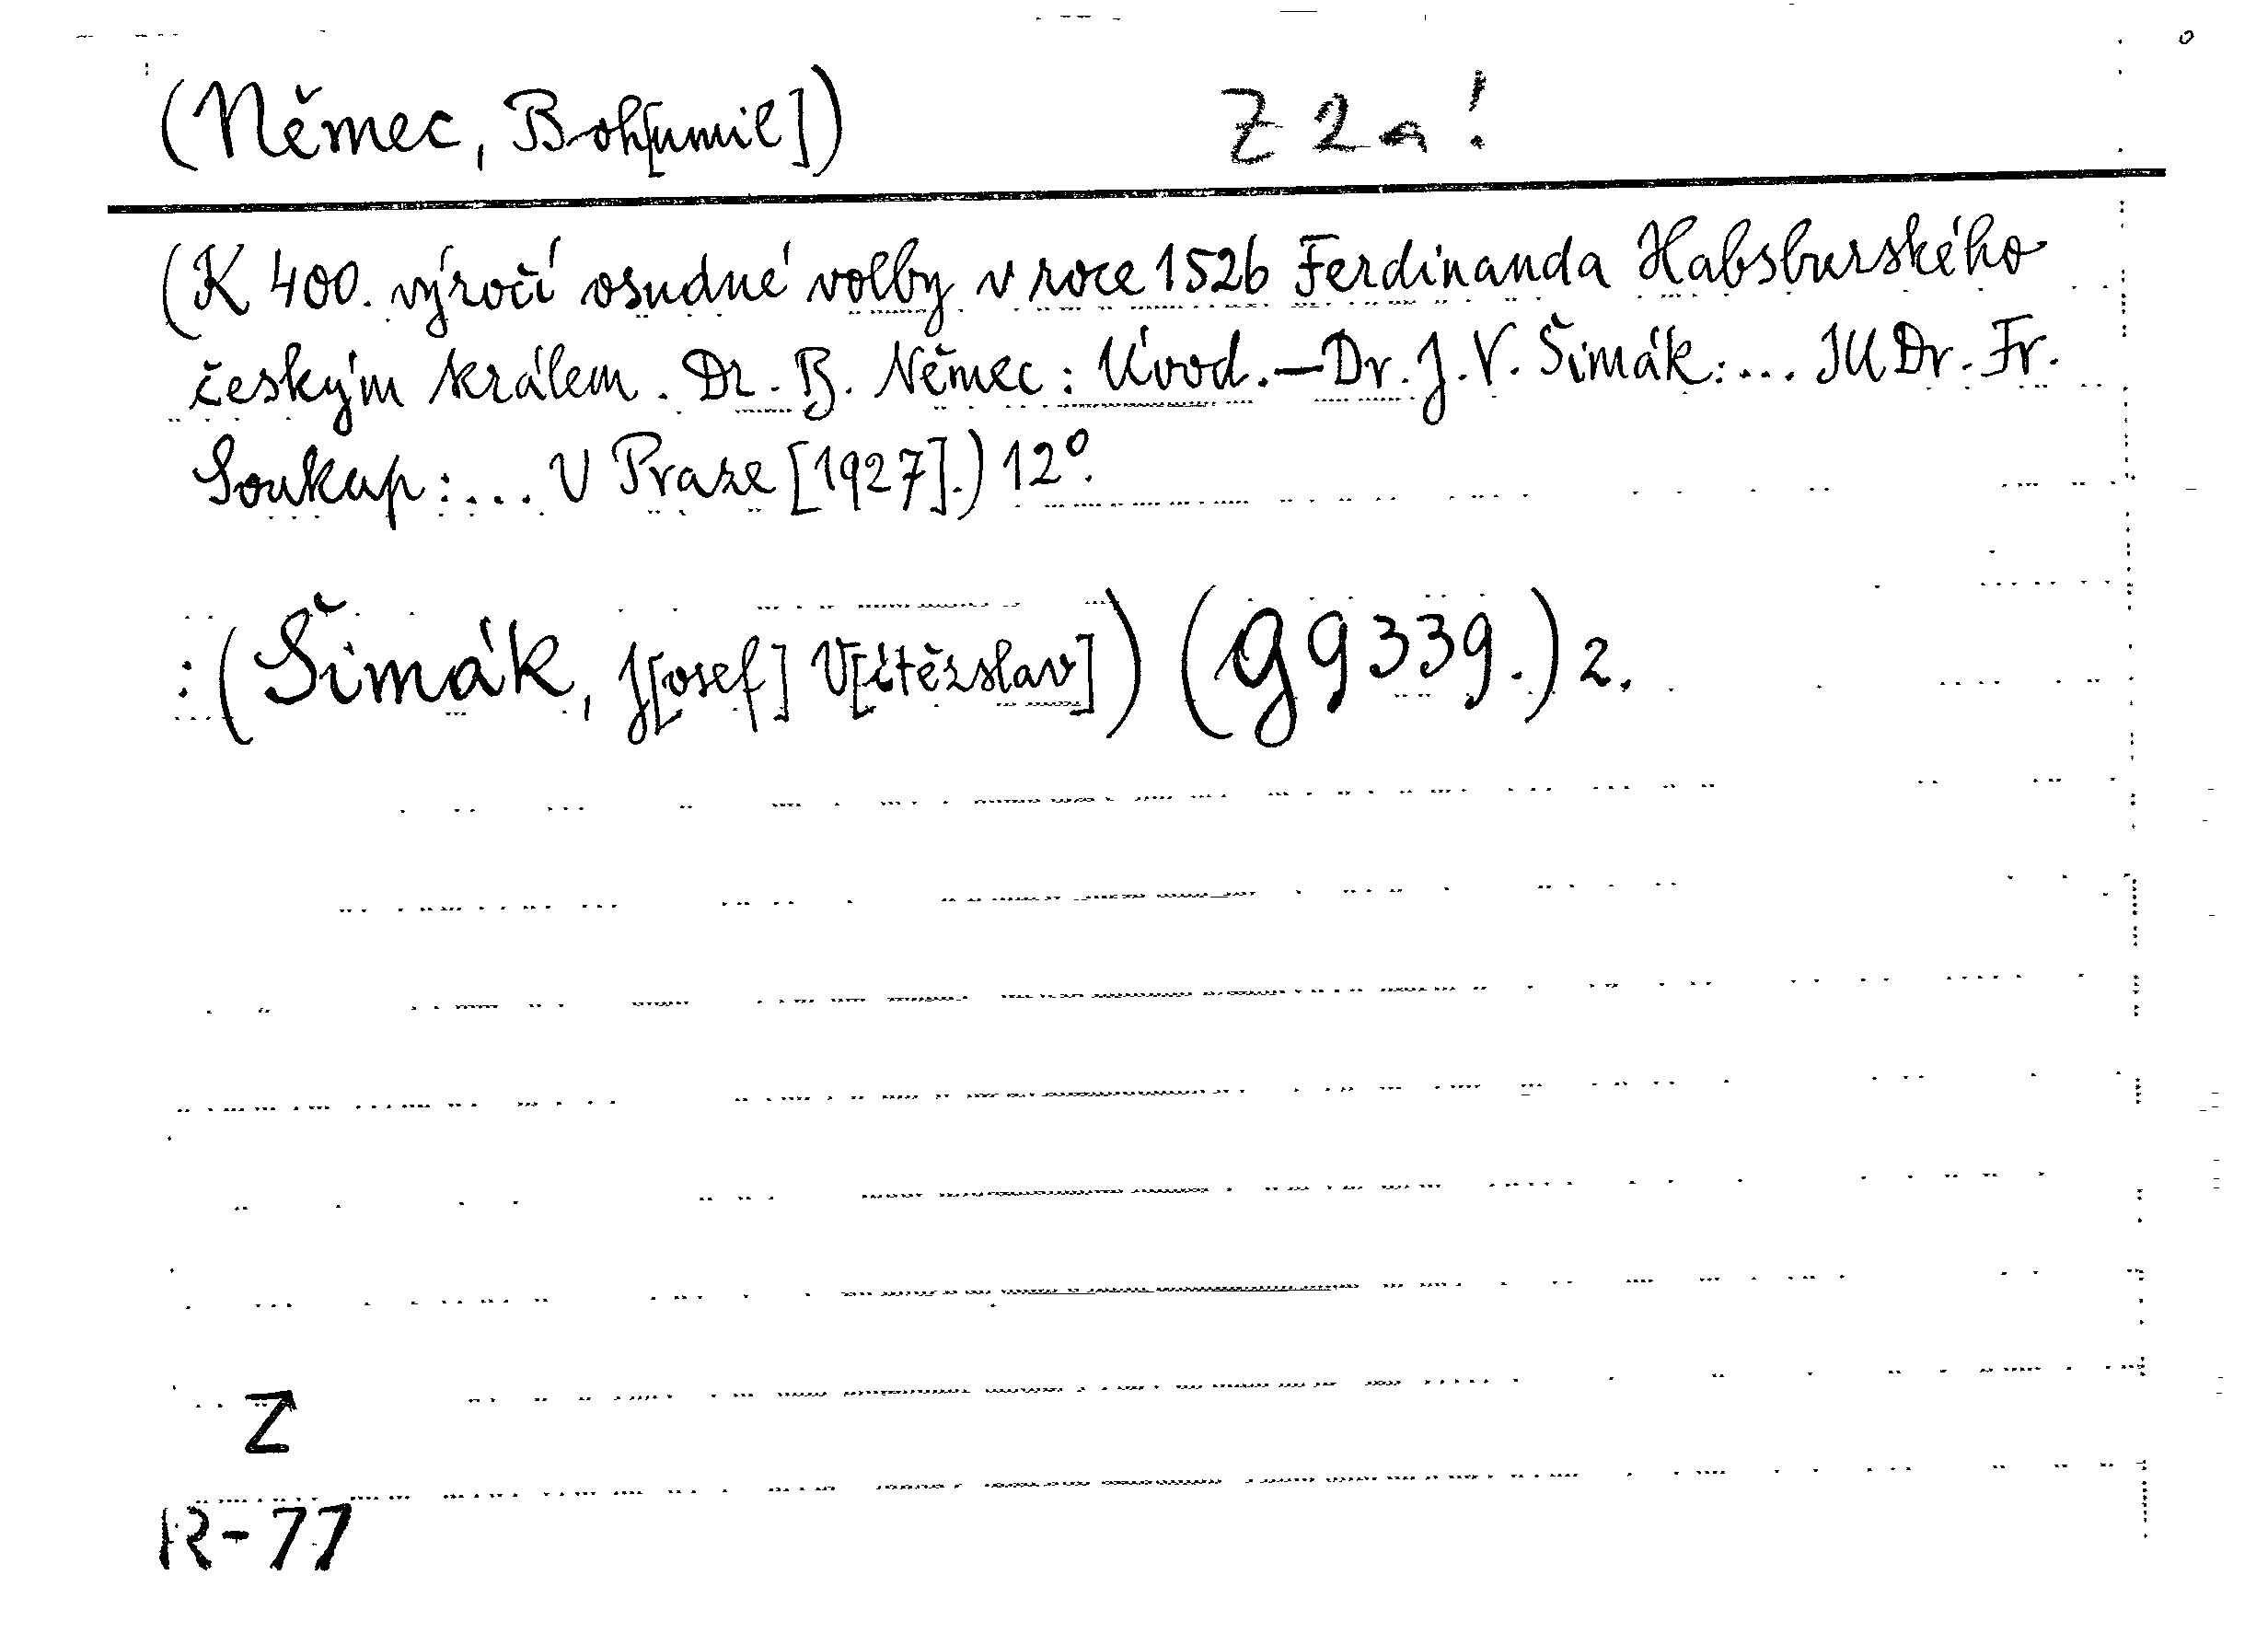 (Němec, Boh[umil]) Z 2a!
(K 400. výročí osudné volby v roce 1526 Ferdinanda Habsburského
českým králem. Dr. B. Němec: Úvod.—Dr. J. V. Šimák:... JUDr. Fr.
Soukup:... V Praze [1927].) 12°.
:(Šimák, J[osef] V[ítězslav]) (Gg 339.) 2.
Z
R-77